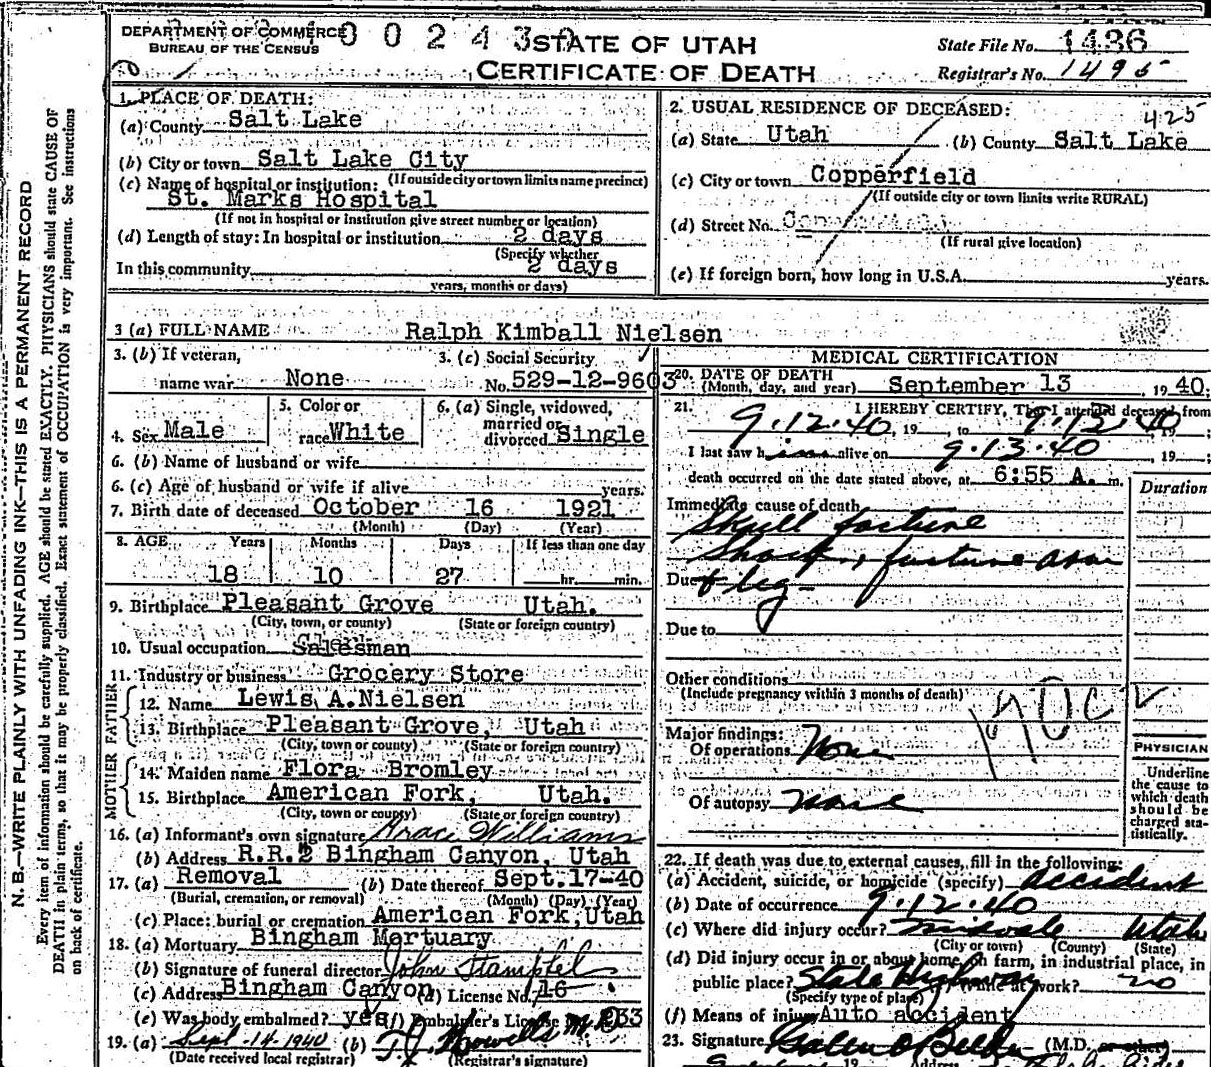 DEPARTMENT OF COMMERCE
BUREAU OF THE CENSUS
0 0 2 4 3
STATE OF UTAH
CERTIFICATE OF DEATH
State File No. 1436
Registrar's No. 1495
N. B.—WRITE PLAINLY WITH UNFADING INK—THIS IS A PERMANENT RECORD
Every item of information should be carefully supplied. AGE should be stated EXACTLY. PHYSICIANS should state CAUSE OF
DEATH in plain terms, so that it may be properly classified. Exact statement of OCCUPATION is very important. See instructions
on back of certificate.
1. PLACE OF DEATH:
(a) County Salt Lake
(b) City or town Salt Lake City
(If outside city or town limits name precinct)
(c) Name of hospital or institution:
St. Marks Hospital
(If not in hospital or institution give street number or location)
(d) Length of stay: In hospital or institution 2 days
(Specify whether
In this community 2 days
years, months or days)
2. USUAL RESIDENCE OF DECEASED:
425
(a) State Utah (b) County Salt Lake
(c) City or town Copperfield
(If outside city or town limits write RURAL)
(d) Street No.
(If rural give location)
(e) If foreign born, how long in U.S.A. years.
3 (a) FULL NAME Ralph Kimball Nielsen
3. (b) If veteran, name war None
3. (c) Social Security No. 529-12-9603
4. Sex Male
5. Color or race White
6. (a) Single, widowed, married or divorced Single
6. (b) Name of husband or wife
6. (c) Age of husband or wife if alive years.
7. Birth date of deceased October 16 1921
(Month) (Day) (Year)
8. AGE Years Months Days If less than one day
18 10 27 hr. min.
9. Birthplace Pleasant Grove Utah.
(City, town, or county) (State or foreign country)
10. Usual occupation Salesman
11. Industry or business Grocery Store
FATHER
12. Name Lewis A. Nielsen
13. Birthplace Pleasant Grove, Utah
(City, town or county) (State or foreign country)
MOTHER
14. Maiden name Flora Bromley
15. Birthplace American Fork, Utah.
(City, town or county) (State or foreign country)
16. (a) Informant's own signature Grace Williams
(b) Address R.R.2 Bingham Canyon, Utah
17. (a) Removal (b) Date thereof Sept.17-40
(Burial, cremation, or removal) (Month) (Day) (Year)
(c) Place: burial or cremation American Fork, Utah
18. (a) Mortuary Bingham Mortuary
(b) Signature of funeral director John Stampfel
(c) Address Bingham Canyon (d) License No. 16
(e) Was body embalmed? yes (f) Embalmer's License 233
19. (a) Sept. 14-1940 (b)
(Date received local registrar) (Registrar's signature)
MEDICAL CERTIFICATION
20. DATE OF DEATH
(Month, day, and year) September 13, 1940
21. I HEREBY CERTIFY, That I attended deceased from
9.12.40, 19 , to 9.13.40, 19 ;
I last saw him alive on 9.13.40, 19 ;
death occurred on the date stated above, at 6:55 A. m.
Duration
Immediate cause of death
Skull facture
Shock, facture arm
Due & leg
Due to
Other conditions
(Include pregnancy within 3 months of death)
Major findings:
Of operations None
Of autopsy None
PHYSICIAN
Underline
the cause to
which death
should be
charged sta-
tistically.
22. If death was due to external causes, fill in the following:
(a) Accident, suicide, or homicide (specify) accident
(b) Date of occurrence 9.12.40
(c) Where did injury occur? Midvale Utah
(City or town) (County) (State)
(d) Did injury occur in or about home, on farm, in industrial place, in
public place? State Highway While at work? no
(Specify type of place)
(f) Means of injury Auto accident
23. Signature (M.D. or other)